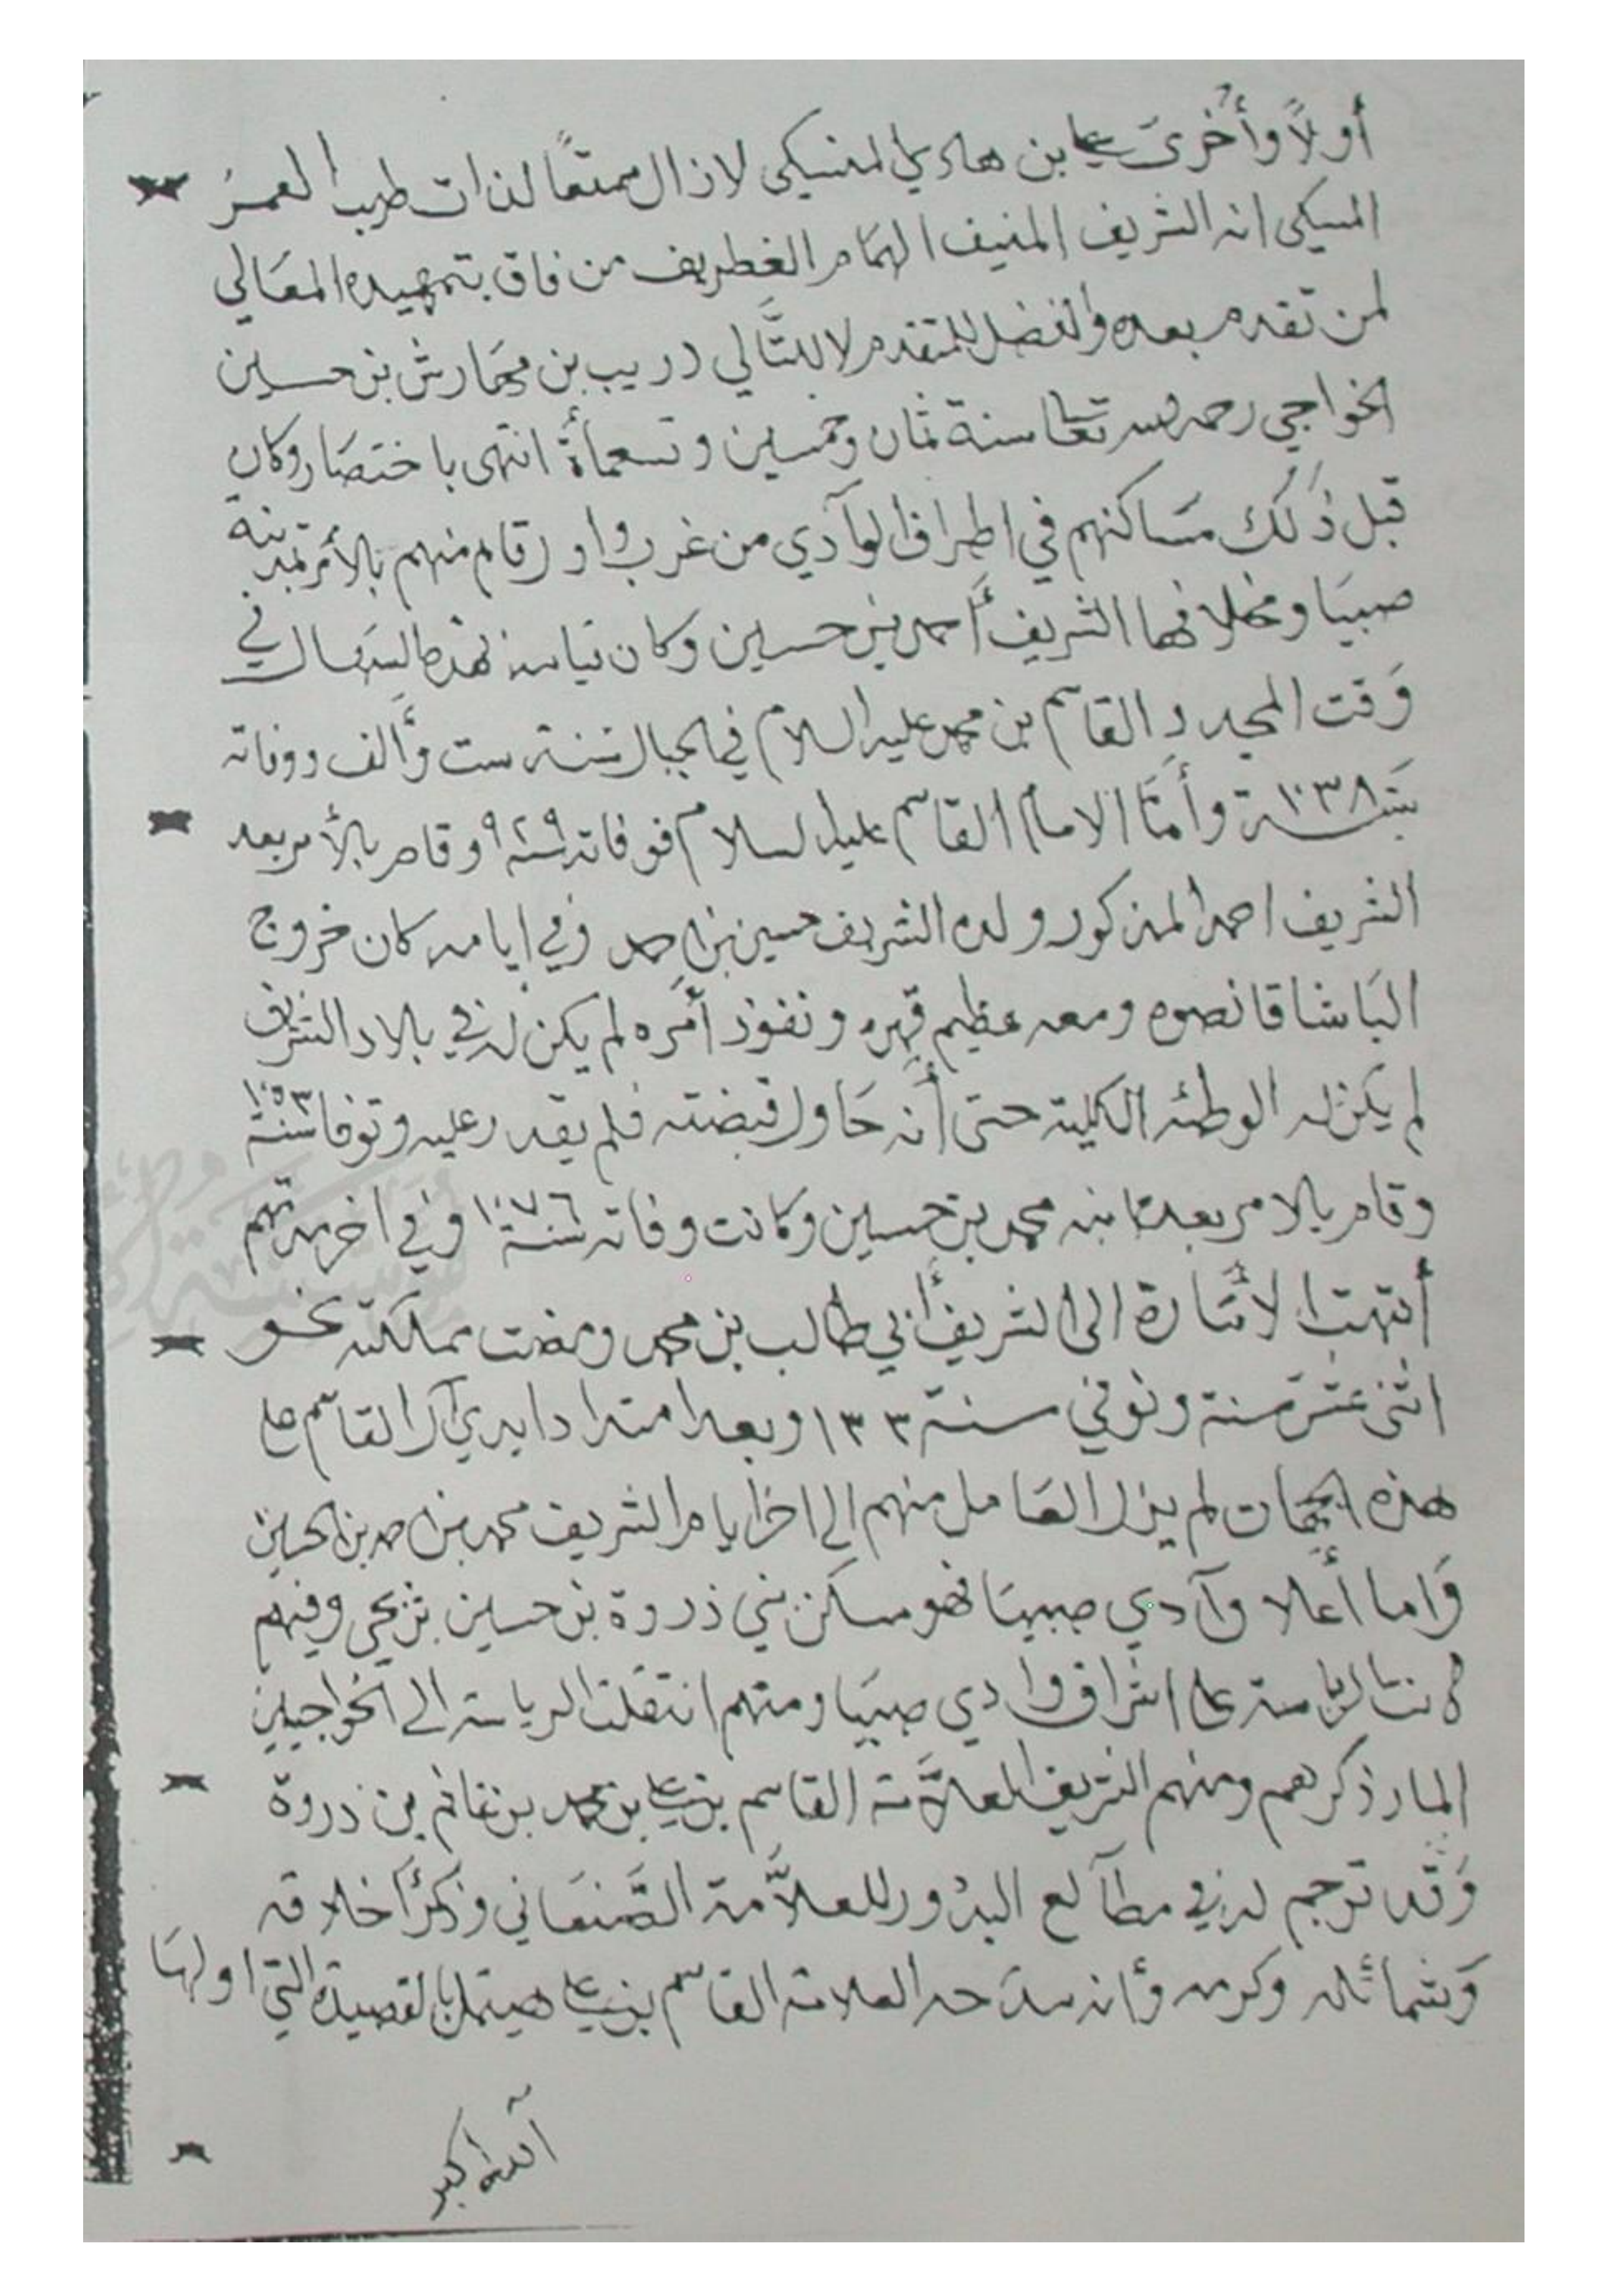 أولاً وأخرى علي بن هادي المنسكي لازال ممتعًا لذات طيب العمرُ
المسيكي انه الشريف المنيف الهمام الغطريف من فاق بتمهيده المعَالي
لمن تقدم بعده والفضل للمتقدم لا للتَّالي دريب بن مهارش بن حسين
الخواجي رحمه الله تعَالى سنة ثمان وخمسين وتسعمأة انتهى باختصَار وكان
قبل ذلك مسَاكنهم في اطراف الوآدي من غرب واو رقام منهم بالأمر بمدينة
صبيَا ومخلافها الشريف أحمد بن حسين وكان قيامه في
وَقت المجدد القاسم بن محمد عليه السلام في الجبال سنة ست وألف ووفاته
سنة ١٠٣٨ وأمَّا الامام القاسم عليه السلام فوفاته سنة ١٠٢٩ وقام بالأمر بعد
الشريف احمد المذكور ولده الشريف حسين بن احمد وفي ايامه كان خروج
البَاشا قانصوه ومعه عظيم قهره ونفوذ أمَره لم يكن له في بلاد الشريف
لم يكن له الوطئه الكلية حتى أنه حَاول قبضته فلم يقدر عليه وتوفا سنة ١٠٥٣
وقام بالامر بعده ابنه محمد بن حسين وكانت وفاته سنة ١٠٧٦ وفي اخر مدتهم
أنتهت الأمَارة الى الشريف أبي طالب بن محمد ومضت مملكته نحو
اثنى عشرَ سنة وتوفي سنة ١٣٣ وبعد امتداد ايدي آل القاسم على
هذه الجهات لم يزل العَامل منهم الى اخر ايام الشريف محمد بن احمد بن الحسين
وَاما أعلا وآدي صبيَا فهو مسكن بني ذروة بن حسين بن يحي وفيهم
كانت الرياسة على اشراف وادي صبيَا ومنهم انتقلت الرياسة الى الخواجيين
المار ذكرهم ومنهم الشريف العلاَّمة القاسم بن علي بن محمد بن غانم بن ذروة
وَقد ترجم له في مطآلع البدُور للعلاَّمة الصَّنعَاني وذكَر أخلاقه
وَشمائله وكرمه وأنه مدَحه العلامة القاسم بن علي هيتمل بالقصيدة التي اولهَا
آلله اكبر